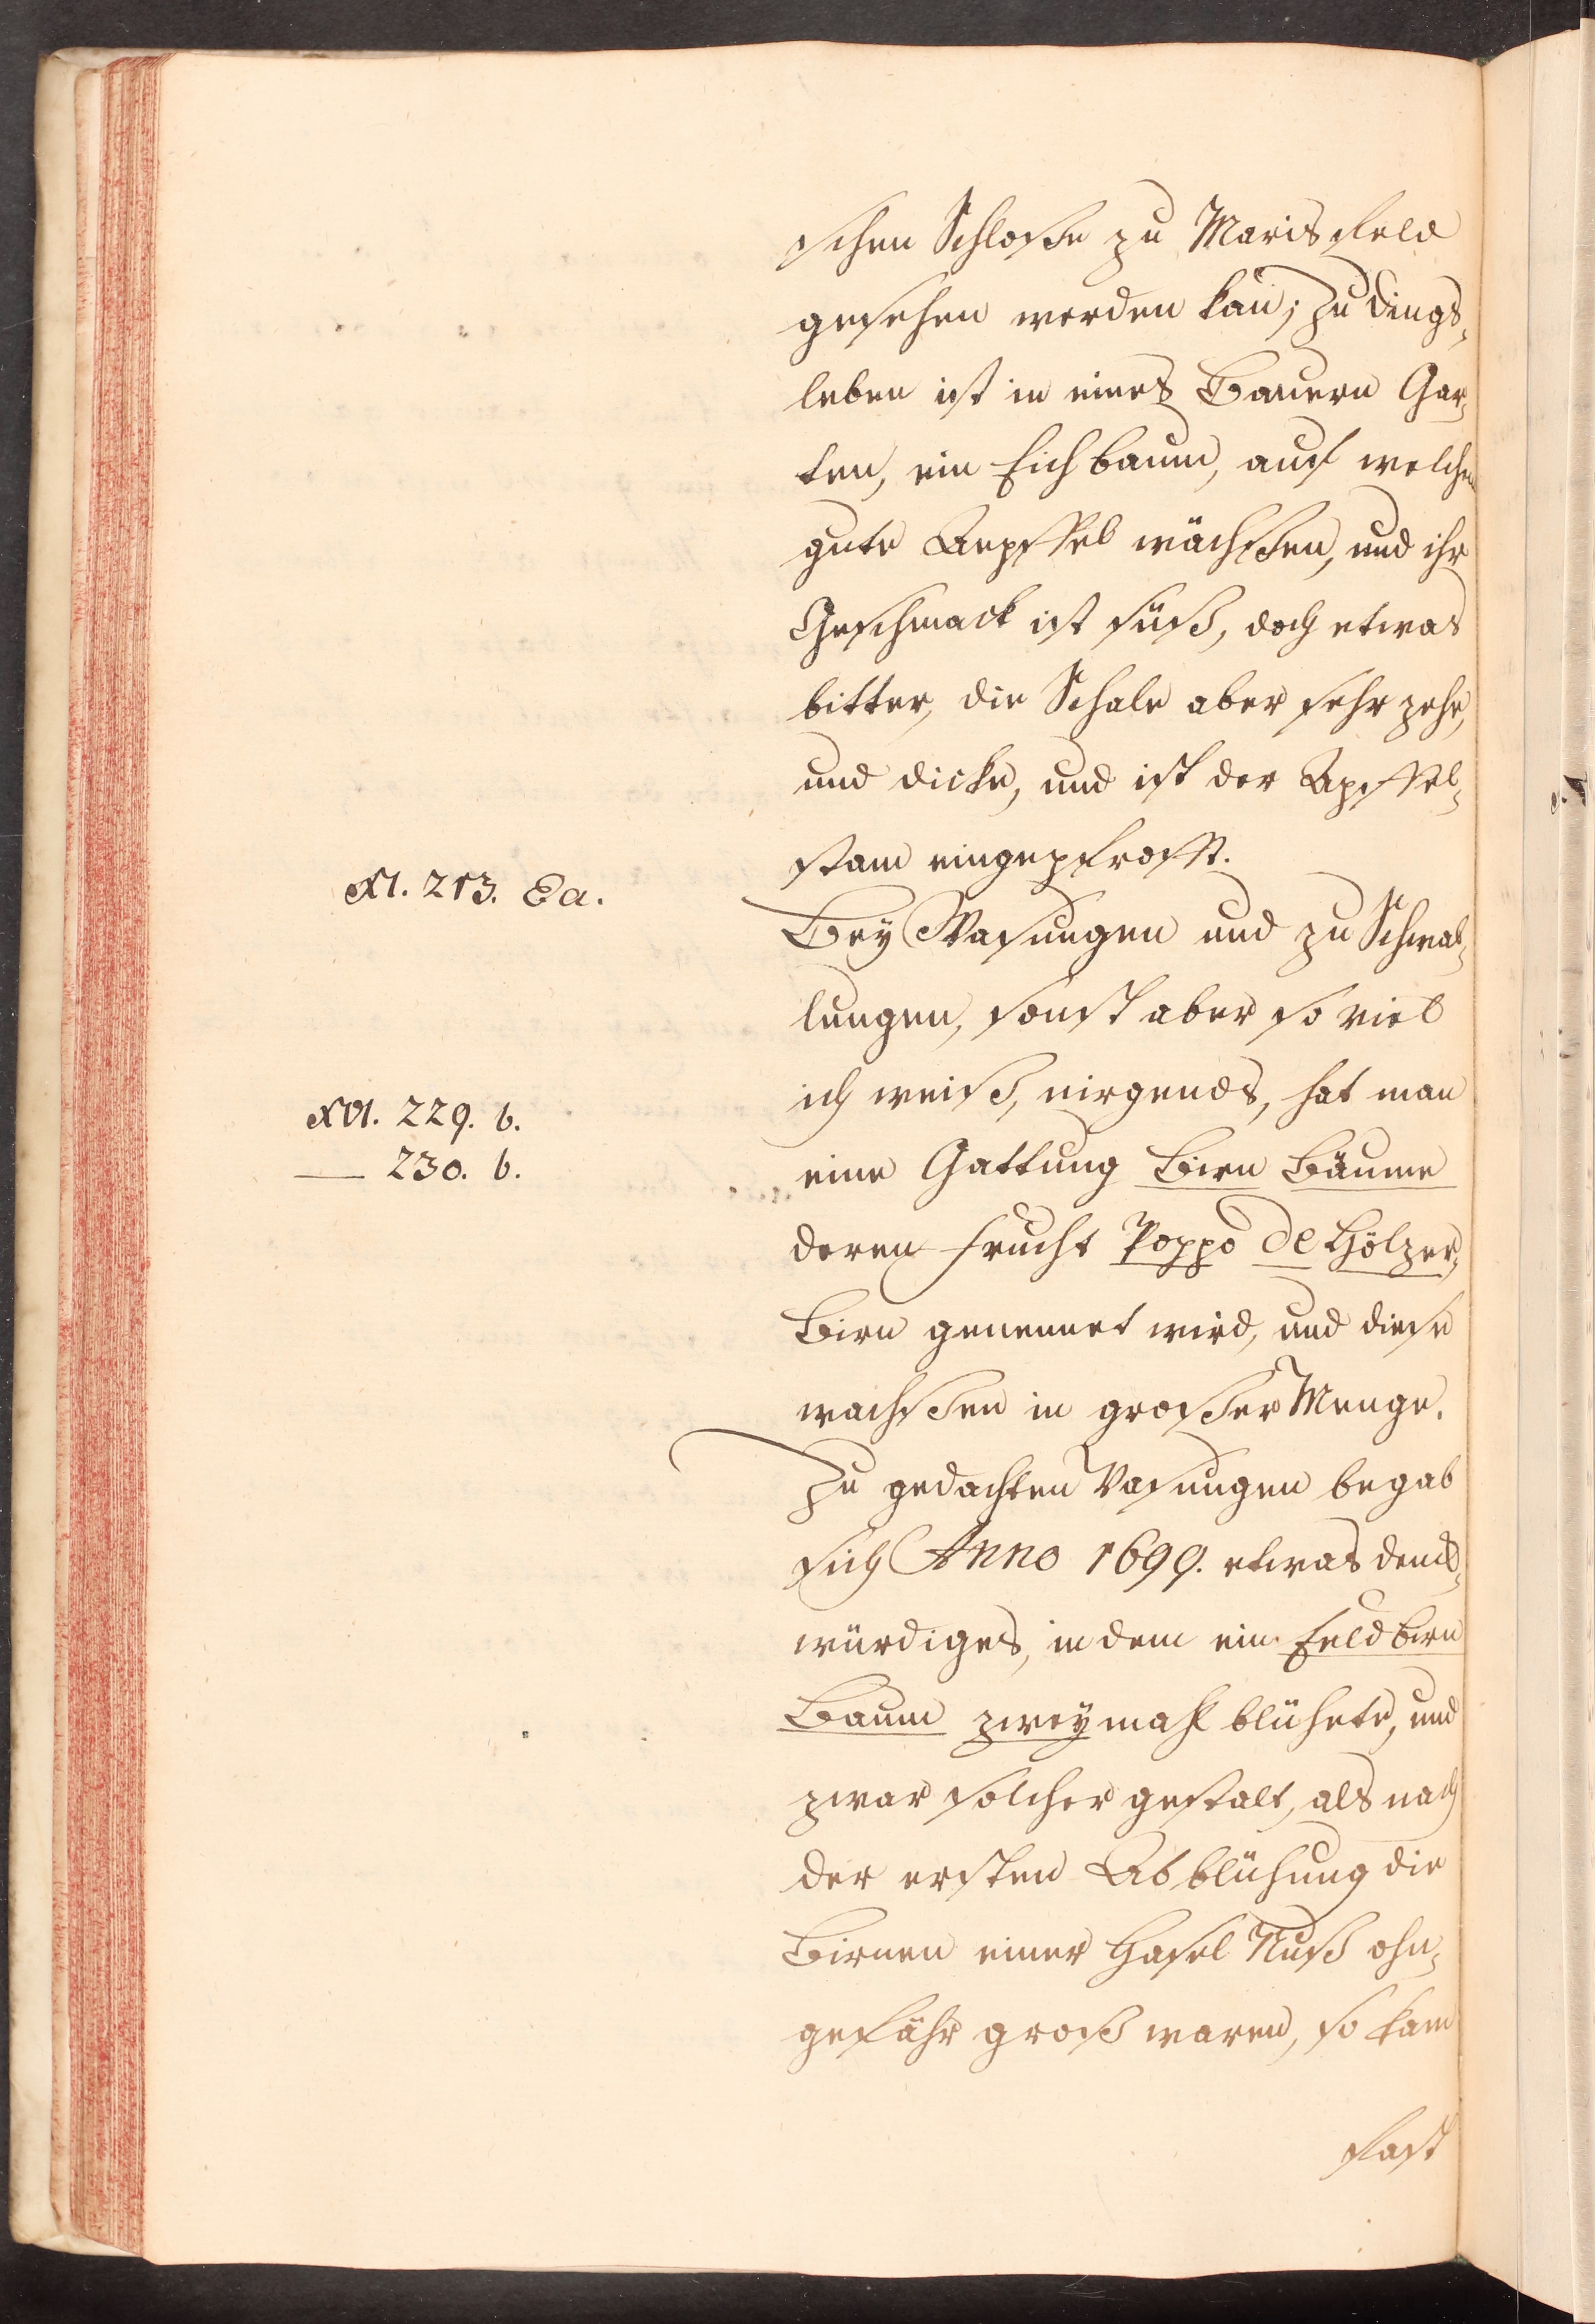 schen Schloße zu Marisfeld
gesehen werden kan; zu Dings-
leben ist in eines Bauern Gar-
ten, ein Eichbaum, auf welchen
gute Aepffel wächßen, und ihr
Geschmack ist süß, doch etwas
bitter, die Schale aber sehr zehe,
und dicke, und ist der Apffel-
stam eingepfrofft.
XI. 213. Ea.
Bey Wasungen und zu Schwal-
lungen, sonst aber so viel
ich weiß, nirgends, hat man
XVI. 229. b.
— 230. b.
eine Gattung Birn Bäume
deren Frucht Poppo de Hölzer-
Birn genennet wird, und diese
wachßen in großer Menge.
Zu gedachten Vasungen begab
sich Anno 1699. etwas denck-
würdiges, in dem ein Feld birn
Baum zweymahl blühete, und
zwar solcher gestalt, als nach
der ersten Abblühung die
Birnen einer Hasel Nuß ohn-
gefähr groß waren, so kam
fast